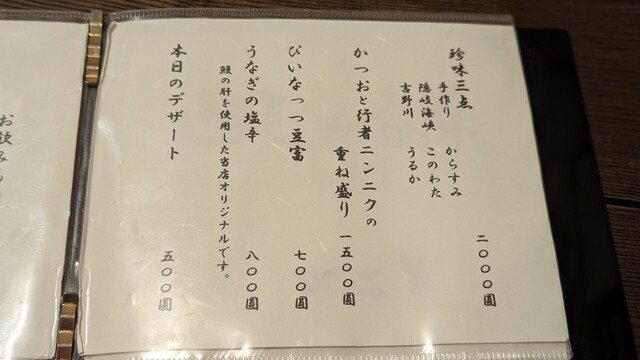 珍味三点
手作り からすみ
隠岐海峡 このわた
吉野川 うるか
二〇〇〇圓
かつおと行者ニンニクの
重ね盛り 一五〇〇圓
ぴいなっつ豆富 七〇〇圓
うなぎの塩辛 八〇〇圓
鰻の肝を使用した当店オリジナルです。
本日のデザート 五〇〇圓
お飲み